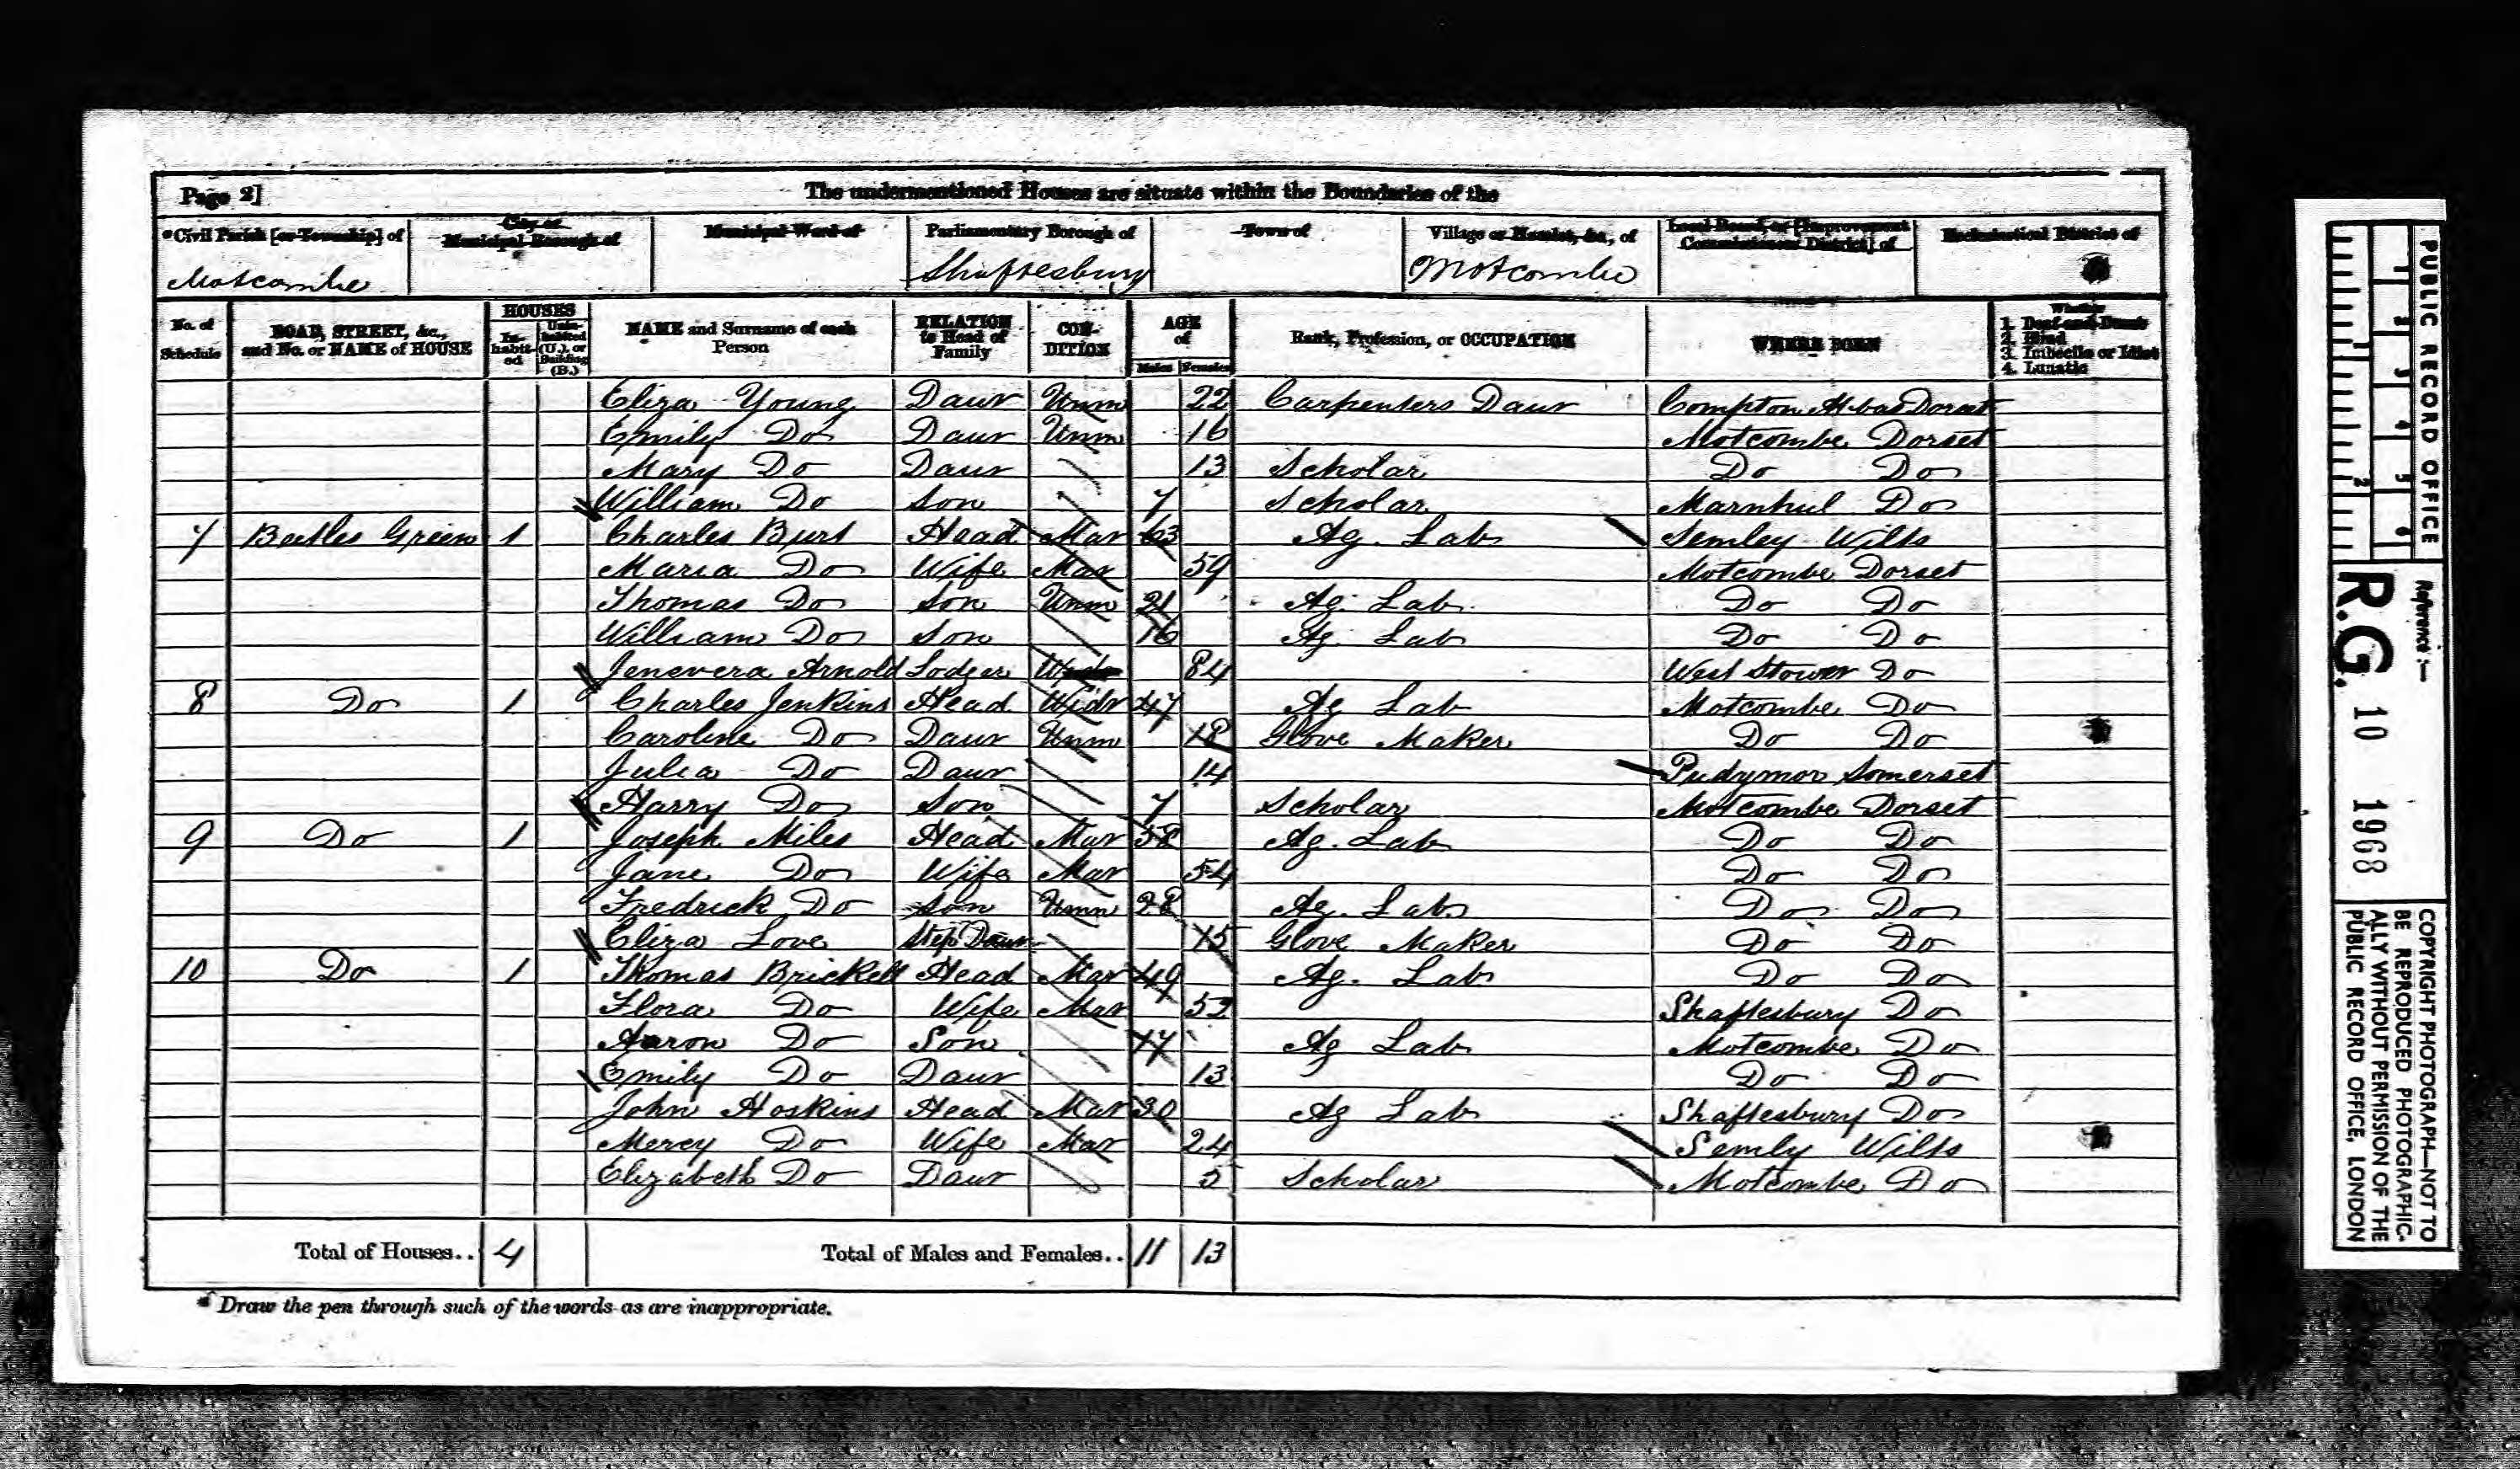 Page 2] The undermentioned Houses are situate within the Boundaries of the
*Civil Parish [or Township] of City or Municipal Borough of Municipal Ward of Parliamentary Borough of Town of Village or Hamlet, &c., of Local Board, or [Improvement Commissioners District] of Ecclesiastical District of
Motcombe Shaftesbury Motcombe
No. of Schedule ROAD, STREET, &c., and No. or NAME of HOUSE HOUSES Inhabited Uninhabited (U.), or Building (B.) NAME and Surname of each Person RELATION to Head of Family CONDITION AGE of Males Females Rank, Profession, or OCCUPATION WHERE BORN Whether 1. Deaf-and-Dumb 2. Blind 3. Imbecile or Idiot 4. Lunatic
Eliza Young Daur Unm 22 Carpenters Daur Compton Abbas Dorset
Emily Do Daur Unm 16 Motcombe Dorset
Mary Do Daur 13 Scholar Do Do
William Do Son 7 Scholar Marnhul Do
7 Green 1 Charles Burt Head Mar 63 Ag. Lab Semley Wilts
Maria Do Wife Mar 59 Motcombe Dorset
Thomas Do Son Unm 21 Ag. Lab Do Do
William Do Son 16 Ag. Lab Do Do
Jenevera Arnold Lodger 84 West Stower Do
8 Do 1 Charles Jenkins Head Widr 47 Ag Lab Motcombe Do
Caroline Do Daur Unm 18 Glove Maker Do Do
Julia Do Daur 14 Pudymor Somerset
Harry Do Son 7 Scholar Motcombe Dorset
9 Do 1 Joseph Miles Head Mar 58 Ag. Lab Do Do
Jane Do Wife Mar 54 Do Do
Fredrick Do Son Unm 28 Ag. Lab Do Do
Eliza Love Step Daur 15 Glove Maker Do Do
10 Do 1 Thomas Brickell Head Mar 49 Ag. Lab Do Do
Flora Do Wife Mar 52 Shaftesbury Do
Aaron Do Son 17 Ag Lab Motcombe Do
Emily Do Daur 13 Do Do
John Hoskins Head Mar 30 Ag Lab Shaftesbury Do
Mercy Do Wife Mar 24 Semly Wilts
Elizabeth Do Daur 5 Scholar Motcombe Do
Total of Houses.. 4 Total of Males and Females.. 11 13
* Draw the pen through such of the words as are inappropriate.
PUBLIC RECORD OFFICE
1 2 3 4 5 6
1 2
Reference:—
R.G. 10 1968
COPYRIGHT PHOTOGRAPH—NOT TO
BE REPRODUCED PHOTOGRAPHIC-
ALLY WITHOUT PERMISSION OF THE
PUBLIC RECORD OFFICE, LONDON